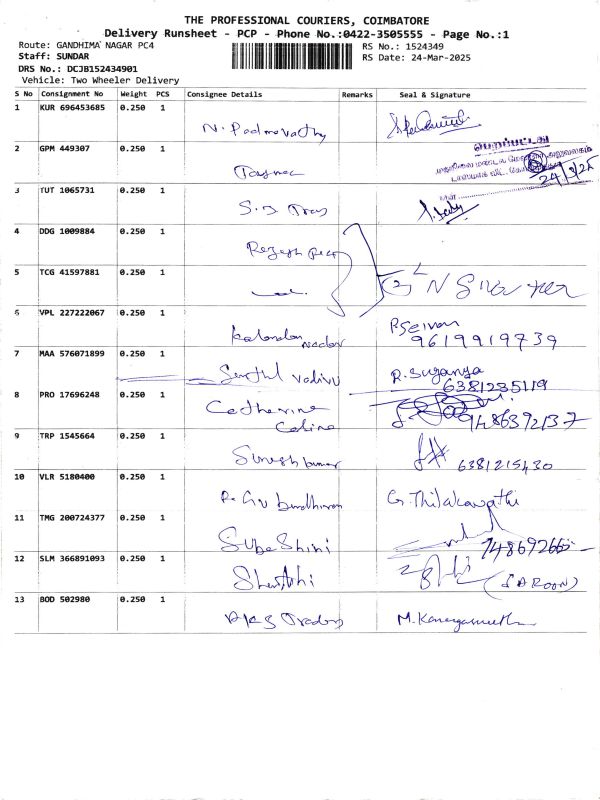 THE PROFESSIONAL COURIERS, COIMBATORE
Delivery Runsheet - PCP - Phone No.:0422-3505555 - Page No.:1
Route: GANDHIMA NAGAR PC4
RS No.: 1524349
Staff: SUNDAR
RS Date: 24-Mar-2025
DRS No.: DCJB152434901
Vehicle: Two Wheeler Delivery
S No Consignment No Weight PCS Consignee Details Remarks Seal & Signature
1 KUR 696453685 0.250 1 N. Padmavathy
2 GPM 449307 0.250 1 Tasmac
பெறப்பட்டது
24/3/25
3 TUT 1065731 0.250 1
4 DDG 1009884 0.250 1
5 TCG 41597881 0.250 1
6 VPL 227222067 0.250 1
9619919739
7 MAA 576071899 0.250 1 Senthil Vadivu R. Suganya
6381235119
8 PRO 17696248 0.250 1 Catherine
Celine
9486392137
9 TRP 1545664 0.250 1 Sureshkumar
6381215430
10 VLR 5180400 0.250 1 G. Thilakavathi
11 TMG 200724377 0.250 1 SubaShini
12 SLM 366891093 0.250 1 (SAROON)
13 BOD 502980 0.250 1 Traders